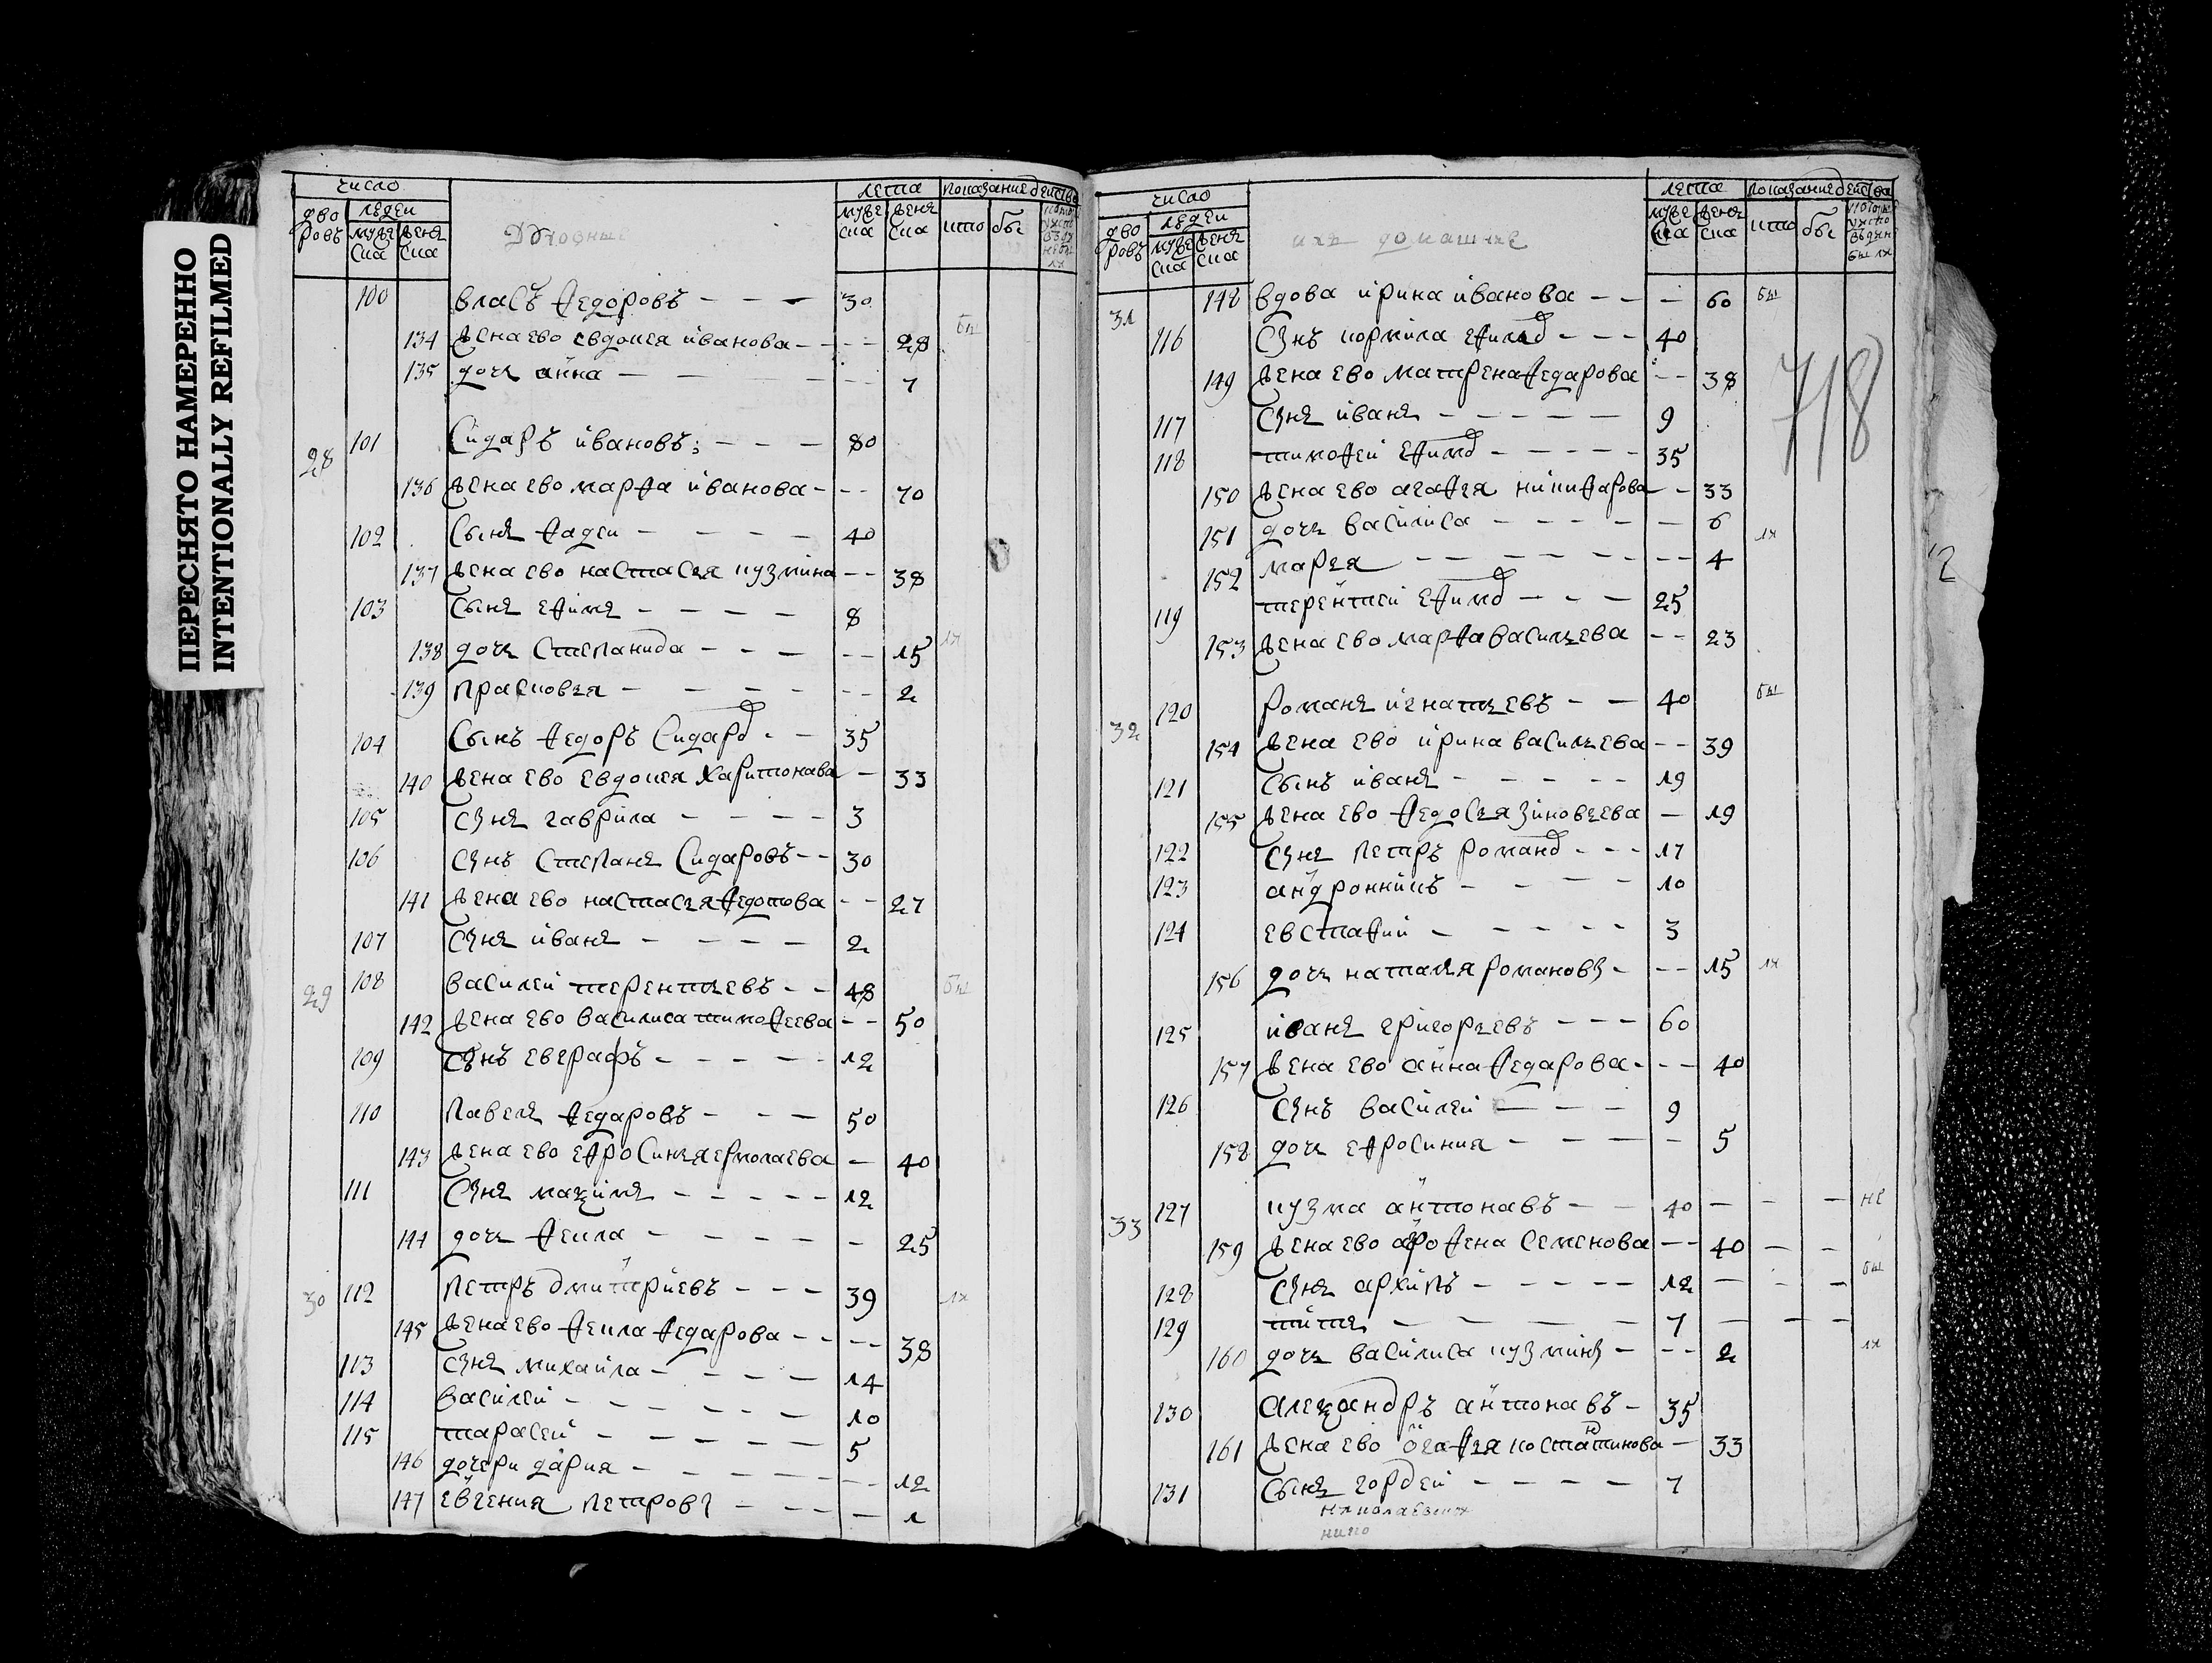 ПЕРЕСНЯТО НАМЕРЕННО
INTENTIONALLY REFILMED
число
дво ровъ
людеи
мужеска
женска
Духовные
лета
мужеска
женска
показание действа
кто
обе
100 власъ федоровъ - - - 30
134 жена ево евдокея иванова - - - - 28 бы
135 дочь анна - - - - 7
28 101 Сидаръ ивановъ - - - 80
136 жена ево марфа иванова - - - 70
102 Сынъ фадеи - - - - 40
137 жена ево настасья кузмина - - 38
103 Сынъ ефимъ - - - - 8
138 дочь Степанида - - - - - 15 ля
139 прасковья - - - - - - 2
104 Сынъ федоръ Сидаро - - 35
140 жена ево евдокея харитонава - 33
105 Сынъ гаврила - - - - 3
106 Сынъ Степанъ Сидаровъ - - 30
141 жена ево настасья федотова - - 27
107 Сынъ иванъ - - - - 2
29 108 василеи терентьевъ - - 48 бы
142 жена ево василиса тимофеева - - 50
109 Сынъ евграфъ - - - - - 12
110 Павелъ федаровъ - - - 50
143 жена ево ефросинья ермолаева - 40
111 Сынъ маѯимъ - - - - - 12
144 дочь фекла - - - - - 25
30 112 Петръ дмитриевъ - - - 39 ля
145 жена ево фекла федарова - - - - 38
113 Сынъ михаила - - - - 14
114 василеи - - - - - - 10
115 тарасеи - - - - - 5
146 дочери дария - - - - - - - 12
147 евгения петров - - - - 1
число
дво ровъ
людеи
мужеска
женска
ихъ домашние
лета
мужеска
женска
показание действа
кто
обе
31 148 вдова ирина иванова - - - 60 бы
116 Сынъ кормила ефимо - - - 40
149 жена ево матрена федарова - - 38
117 Сынъ иванъ - - - - - 9
118 тимофеи ефимо - - - - - 35
150 жена ево агафея никифарова - - 33
151 дочь василиса - - - - - 6 ля
152 марья - - - - - - - - 4
119 терентеи ефимо - - - 25
153 жена ево марфа васильева - - 23
32 120 романъ игнатьевъ - - 40 бы
154 жена ево ирина васильева - - 39
121 Сынъ иванъ - - - - - 19
155 жена ево федосья зиновьева - 19
122 Сынъ Петръ романо - - - 17
123 андронникъ - - - - 10
124 евстафии - - - - - 3
156 дочь наталья романов - - - 15 ля
125 иванъ григорьевъ - - - 60
157 жена ево анна федарова - - - 40
126 Сынъ василеи - - - 9
158 дочь ефросиния - - - - 5
33 127 кузма антонавъ - - 40 - - - не
159 жена ево афрофена Семенова - - 40 - -
128 Сынъ архипъ - - - - - 12 - - - бы
129 титъ - - - - - 7 - - -
160 дочь василиса кузмин - - - 2 ля
130 Алеѯандръ антонавъ - 35
161 жена ево огафья костантинова - 33
131 Сынъ гордеи - - - - 7
718